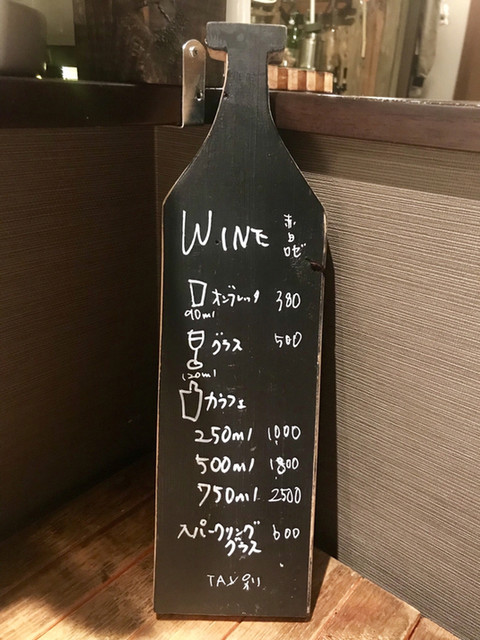 WINE
赤
白
ロゼ
オンブレッタ 380
90ml
グラス 500
120ml
カラフェ
250ml 1,000
500ml 1,800
750ml 2,500
スパークリング
グラス 600
TAX別